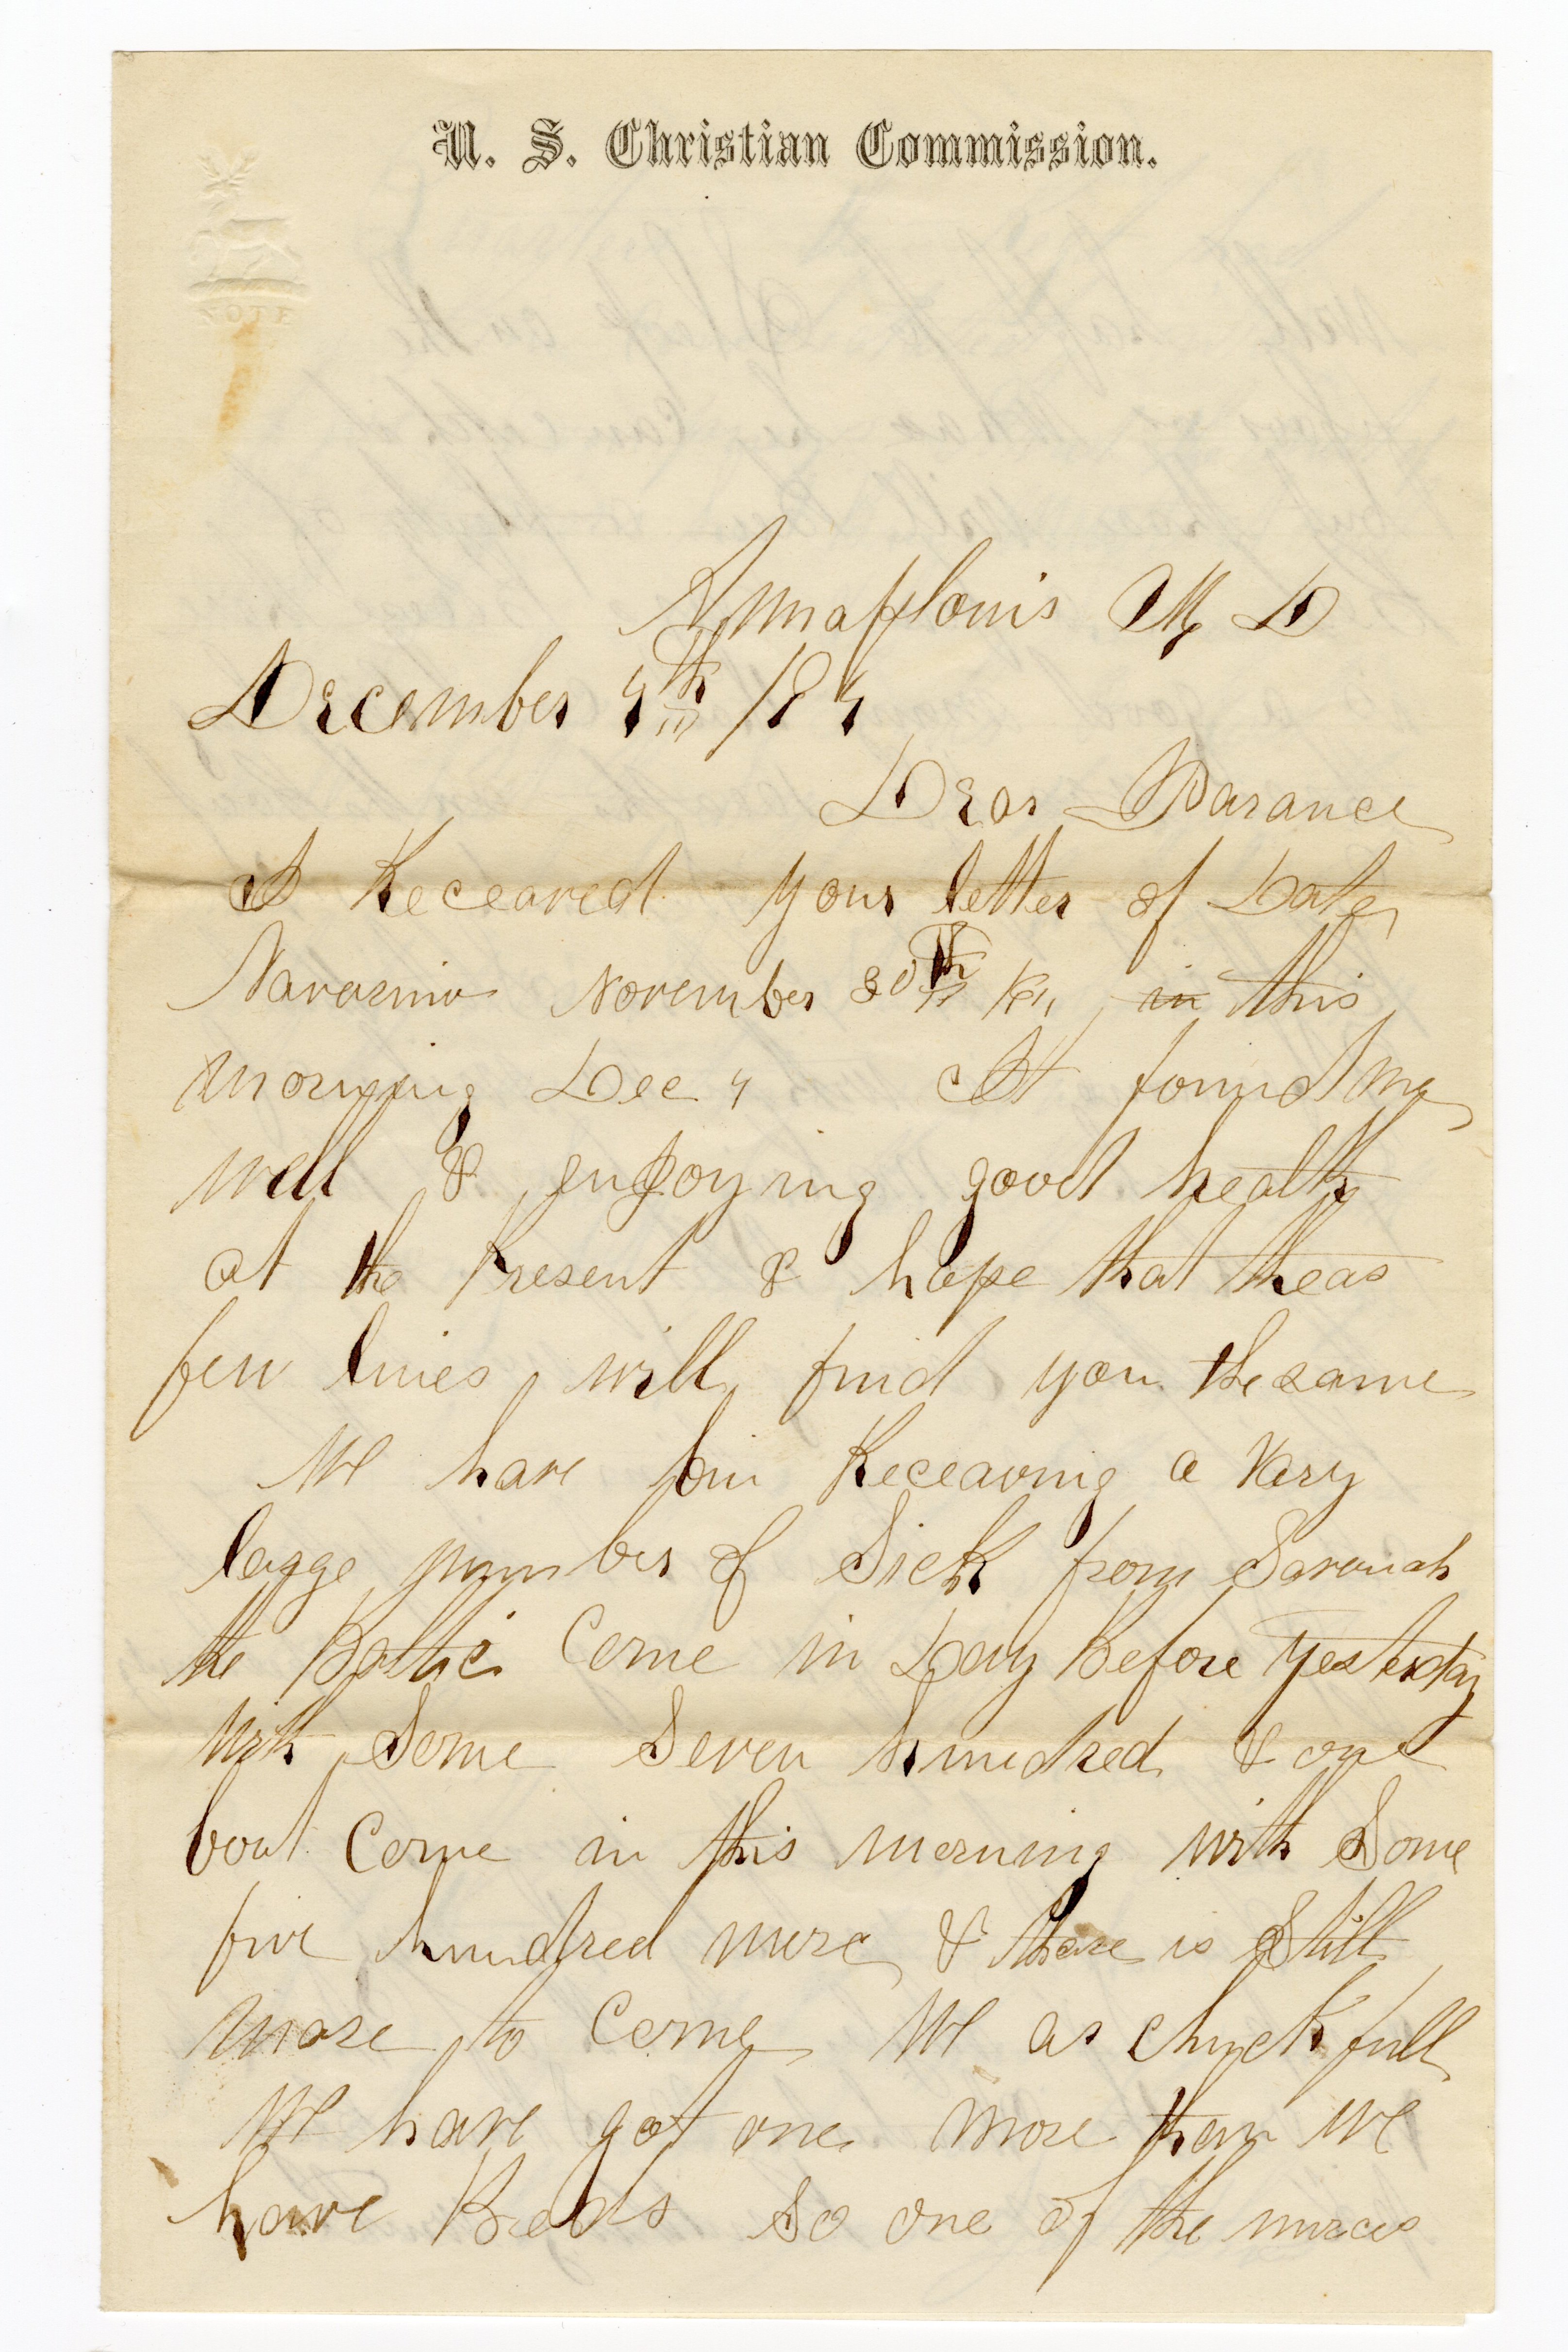 U. S. Christian Commission.
NOTE
Annaplouis M D
December 4th / 84
Dear Parance
I Receaved your letter of Date
Navarino November 30th in this
morning Dec 4 It found me
well & enjoying good health
at the Present & hope that theas
few lines will find you the same
We have bin Receaving a Vary
lagge number of Sick from Savanah
the Baltic Come in Day Before yesterday
with Some Seven hundred & one
bout Come in this morning with Some
five hundred more & thare is Still
more to Come We ar chuck full
We have got one more than we
have Beds so one of the nurces